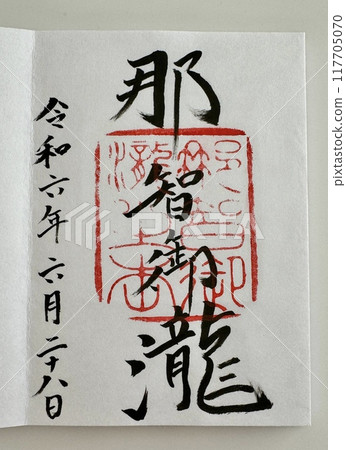 那智御瀧
令和六年六月二十八日
PIXTA
117705070